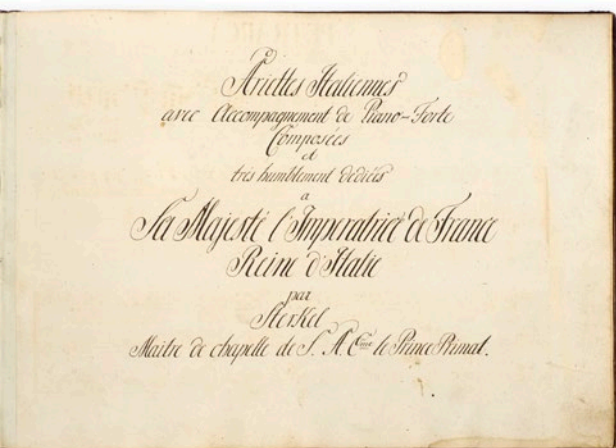 Ariettes Italiennes
avec Accompagnement de Piano-Forte
Composées
et
très humblement dediées
a
Sa Majesté l'Imperatrice de France
Reine d'Italie
par
Sterkel
Maitre de chapelle de S. A. Eme le Prince Primat.